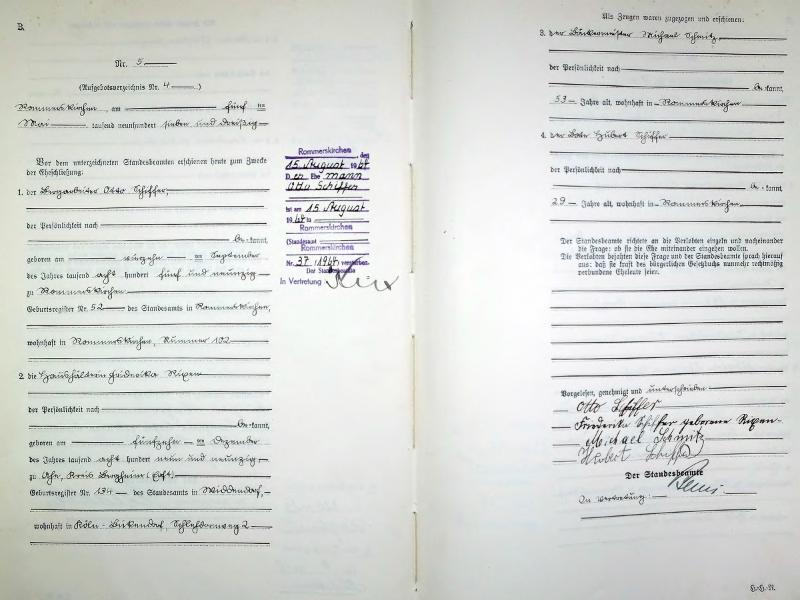 B.
Nr. 5
(Aufgebotsverzeichnis Nr. 4.)
Rommerskirchen, am fünf ten
Mai tausend neunhundert sieben und dreißig
Vor dem unterzeichneten Standesbeamten erschienen heute zum Zwecke
der Eheschließung:
1. der Bergarbeiter Otto Schiffer,
der Persönlichkeit nach
be kannt,
geboren am vierzehn ten September
des Jahres tausend acht hundert fünf und neunzig
zu Rommerskirchen.
Geburtsregister Nr. 52 des Standesamts in Rommerskirchen,
wohnhaft in Rommerskirchen, Nummer 102
2. die Haushälterin Friederika Ripen
der Persönlichkeit nach
be kannt,
geboren am fünfzehn ten Dezember
des Jahres tausend acht hundert neun und neunzig
zu Ahe, Kreis Bergheim (Erft).
Geburtsregister Nr. 134 des Standesamts in Widdendorf,
wohnhaft in Köln-Bickendorf, Schlehdornweg 2
Rommerskirchen, den
15. August 1964
Der Ehemann
Otto Schiffer
ist am 15. August
1964 in
Rommerskirchen
(Standesamt
Rommerskirchen
Nr. 37/1964) verstorben.
Der Standesbeamte
In Vertretung
Als Zeugen waren zugezogen und erschienen:
3. der Bäckermeister Michael Schmitz,
der Persönlichkeit nach
be kannt,
53 Jahre alt, wohnhaft in Rommerskirchen
4. der Bote Hubert Schiffer
der Persönlichkeit nach
be kannt,
29 Jahre alt, wohnhaft in Rommerskirchen.
Der Standesbeamte richtete an die Verlobten einzeln und nacheinander
die Frage: ob sie die Ehe miteinander eingehen wollen.
Die Verlobten bejahten diese Frage und der Standesbeamte sprach hierauf
aus: daß sie kraft des bürgerlichen Gesetzbuchs nunmehr rechtmäßig
verbundene Eheleute seien.
Vorgelesen, genehmigt und unterschrieben
Otto Schiffer
Friederika Schiffer geborene Ripen
Michael Schmitz
Hubert Schiffer
Der Standesbeamte
In Vertretung: